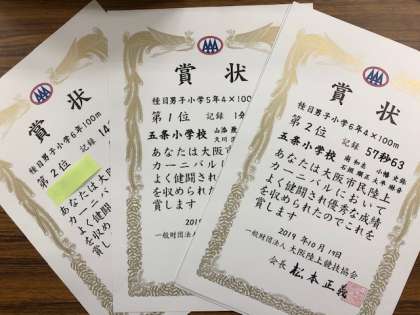 賞状
種目男子小学6年100m
第2位 記録 14
あなたは大
カーニバル
よく健闘
を収めら
賞します
賞状
種目男子小学5年4×100m
第1位 記録 1分
五条小学校
あなたは大阪市民陸上
カーニバルに
よく健闘され
を収められた
賞します
2019
一般財団法人
賞状
種目男子小学6年4×100m
第2位 記録 57秒63
五条小学校
あなたは大阪市民陸上
カーニバルにおいて
よく健闘され優秀な成績
を収められたのでこれを
賞します
2019年10月19日
一般財団法人 大阪陸上競技協会
会長 松本正義